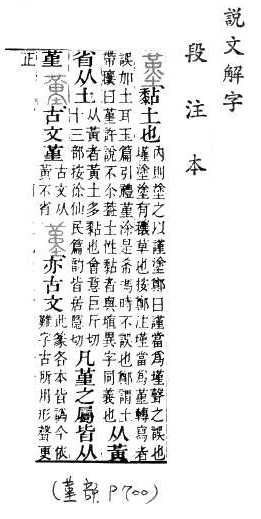 說文解字
段注本
黏土也內則塗之以謹塗鄭曰謹當爲墐聲之誤也
墐塗塗有穰草也按鄭注墐當爲堇轉寫者
誤加土耳玉篇引禮堇塗是希馮時不誤也鄭謂土
帶穰曰堇許說不尒葢土性黏者與埴異字同義也从黃
省从土从黃者黃土多黏也會意巨斤切
十三部按徐仙民篇韵皆居隱切凡堇之屬皆从
堇古文堇古文从
黃不省亦古文此篆各本皆譌今依
難字古所用形聲更
正
(堇部 P700)